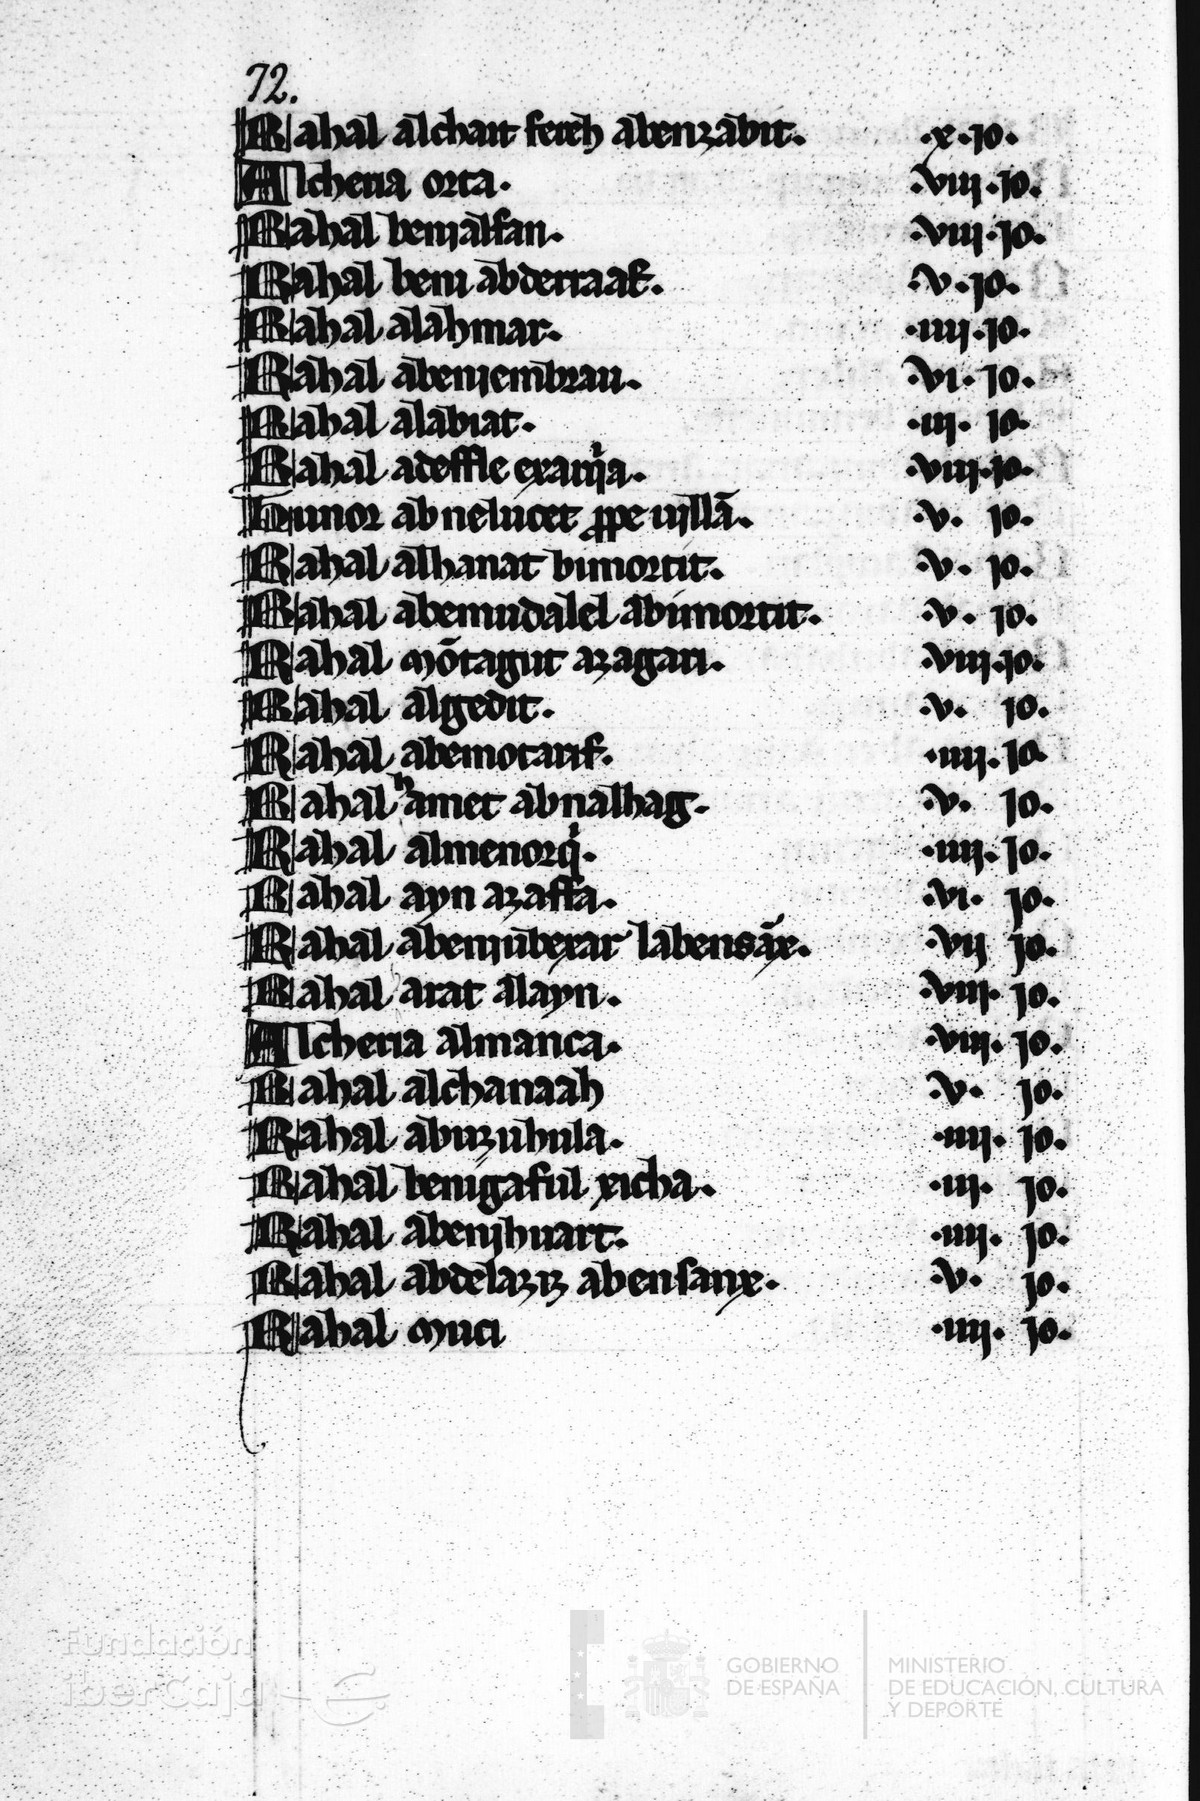 72.
Rahal alchait fereh abenzabit. .x.jo.
Alcheria orta. .viij.jo.
Rahal benjalfan. .viij.jo.
Rahal beni abderraaf. .v.jo.
Rahal alahmar. .iiij.jo.
Rahal abenjembrau. .vi. jo.
Rahal alabiat. .iij. jo.
Rahal adeffle exarqia. .viij.jo.
Hunor abnelucet ppe uillā. .v. jo.
Rahal alhanat bimortit. .v. jo.
Rahal abemudalel abimortit. .v. jo.
Rahal mōtagut azagari. .viij.jo.
Rahal algedit. .v. jo.
Rahal abemotarif. .iiij.jo.
Rahal hamet abnalhag. .v. jo.
Rahal almenorq. .iiij.jo.
Rahal ayn azaffa. .vi. jo.
Rahal abenjubexar labensāx. .vij jo.
Rahal arat alayn. .viij. jo.
Alcheria almanca. .viij. jo.
Rahal alchanaah .v. jo.
Rahal abuzuhula. .iiij. jo.
Rahal benigaful xicha. .iij. jo.
Rahal abenjhuart. .iiij. jo.
Rahal abdelaziz abensanx. .v. jo.
Rahal muci .iiij. jo.
Fundación
iberCaja
GOBIERNO
DE ESPAÑA
MINISTERIO
DE EDUCACIÓN, CULTURA
Y DEPORTE